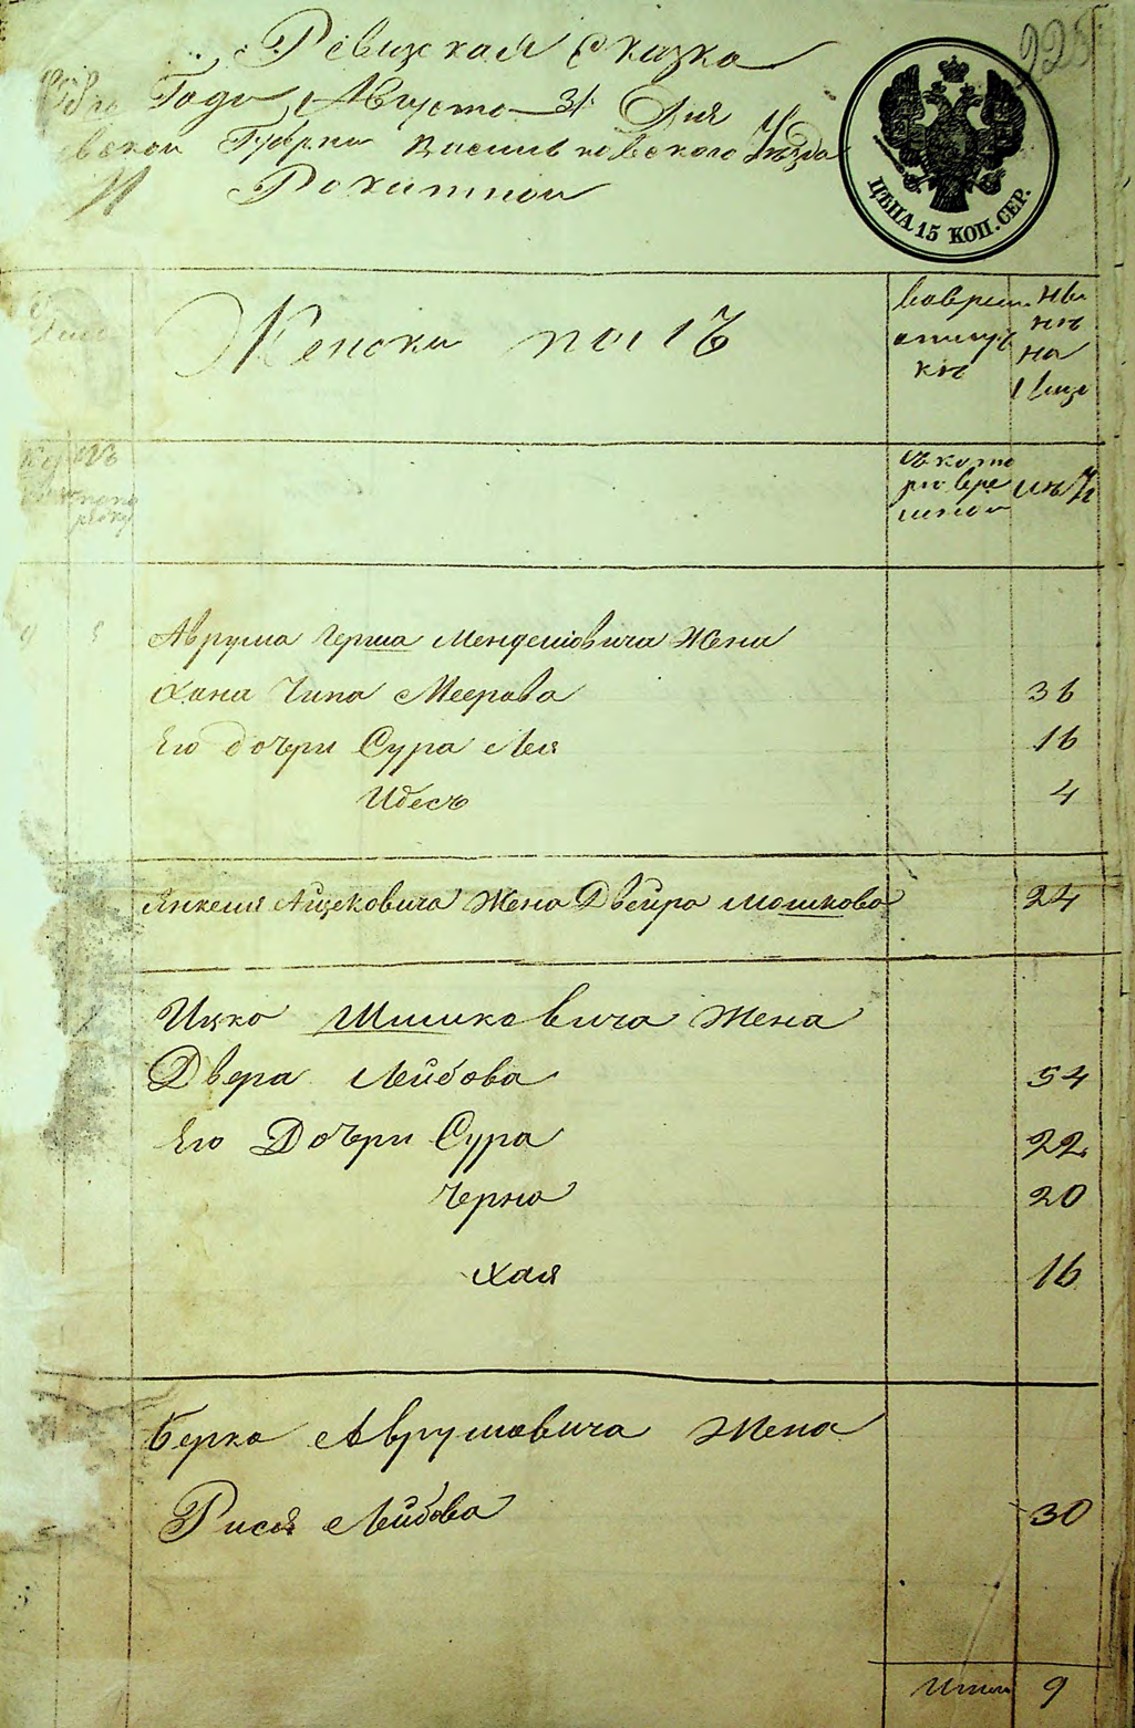 Ревизская Сказка
Года Августа 31 Дня
Губернии Васильковского Уѣзда
М Рокитной
ЦѢНА 15 КОП. СЕР.
Женски полъ
вовремѣ
отлуч
кѣ
ны
нѣ
на
лицо
съ кото
ро вре
мени
лѣтъ
Аврума Герша Менделовича Жена
Хана Чипа Меерова 36
Его дочри Сура Лея 16
Идесъ 4
Янкеля Айзековича Жена Двейра Мошкова 24
Ицко Шмилковича Жена
Двера Лейбова 54
Его Дочри Сура 22
Черна 20
Хая 16
Берка Аврумовича Жена
Рися Лейбова 30
Итого 9